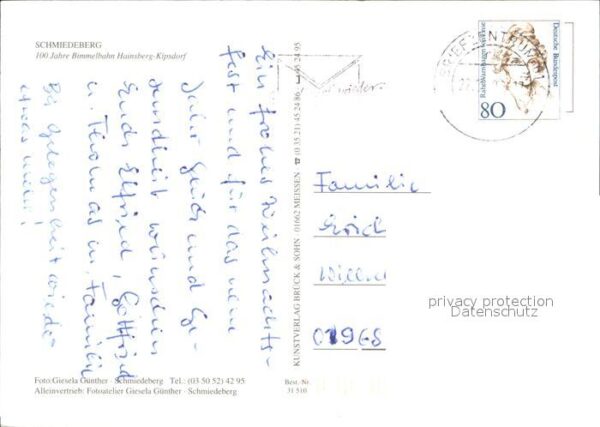 SCHMIEDEBERG
100 Jahre Bimmelbahn Hainsberg-Kipsdorf
Ein frohes Weihnachts-
fest und für das neue
Jahr Glück und Ge-
sundheit wünschen
Euch Elfried, Gottfried
u. Thomas m. Familie
Bei Gelegenheit wieder
etwas mehr!
Foto: Giesela Günther · Schmiedeberg Tel.: (03 50 52) 42 95
Alleinvertrieb: Fotoatelier Giesela Günther · Schmiedeberg
KUNSTVERLAG BRÜCK & SOHN · 01662 MEISSEN · ☎ (0 35 21) 45 24 86 45 24 95
Best.-Nr.
31 510
BRIEFZENTRUM
Deutsche Bundespost
Rahel Varnhagen von Ense
80
Familie
Erich
01968
privacy protection
Datenschutz